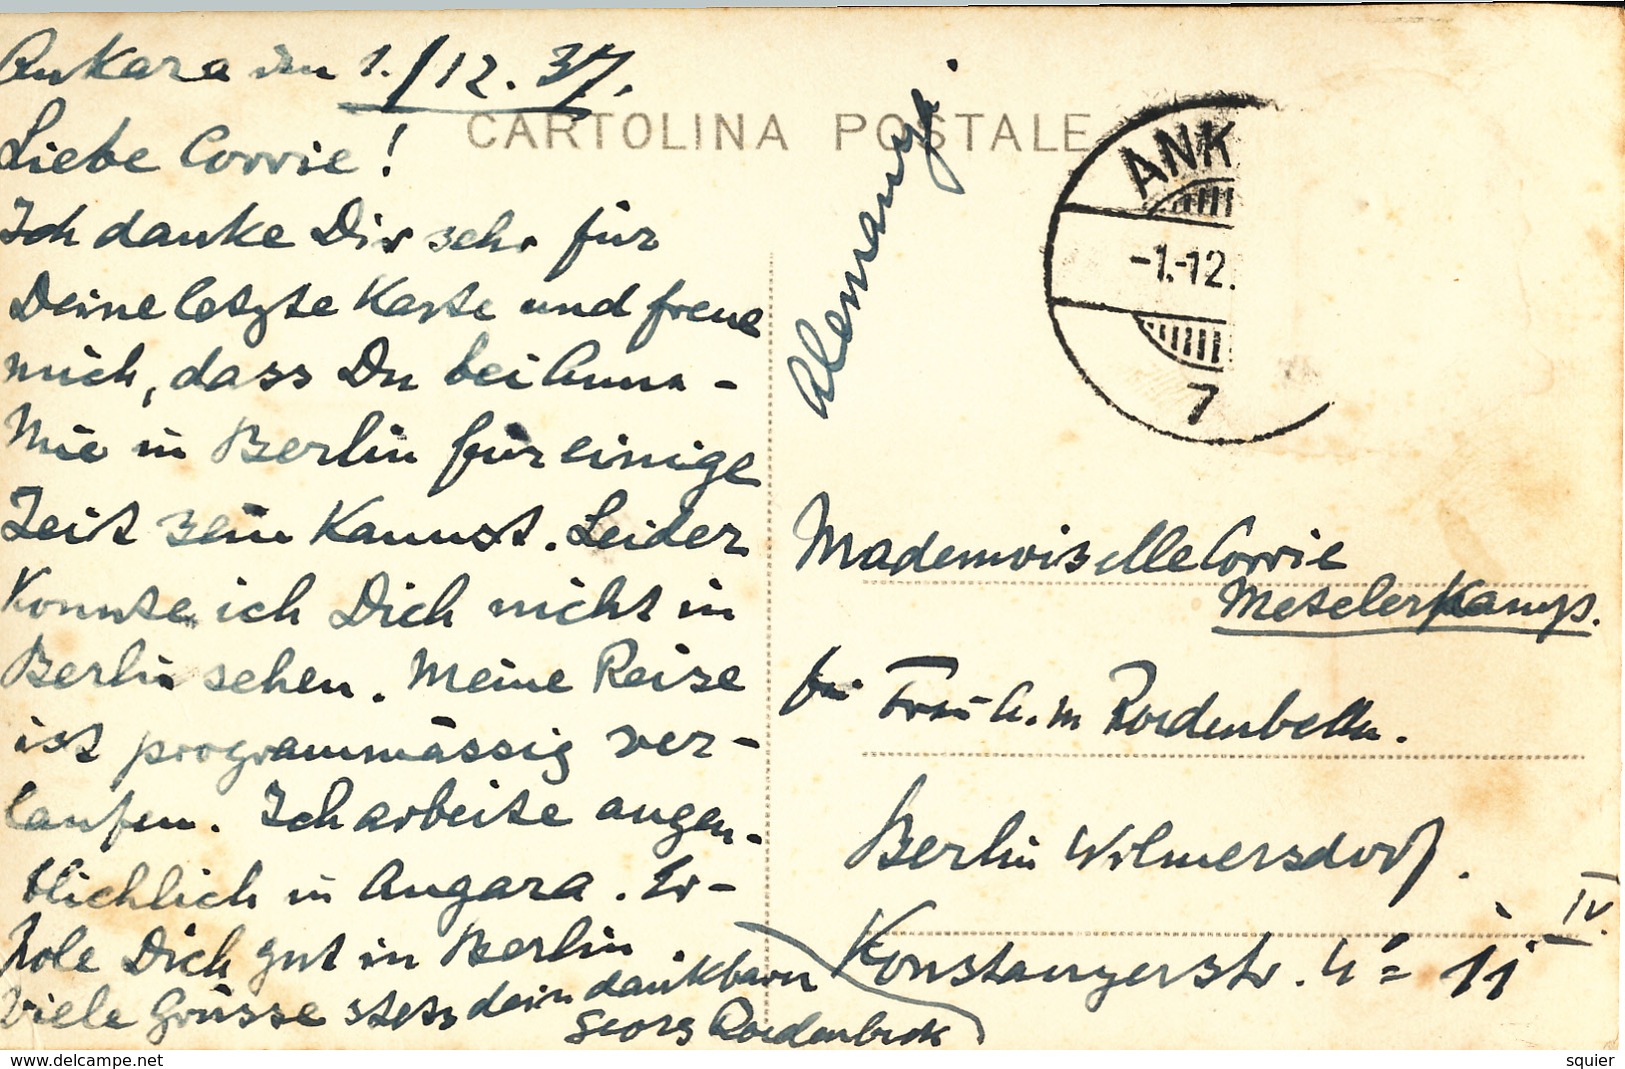 Ankara den 1./12.37.
CARTOLINA POSTALE
Liebe Corrie!
Ich danke Dir sehr für
Deine letzte Karte und freue
mich, dass Du bei Anna-
Mie in Berlin für einige
Zeit sein kannst. Leider
konnte ich Dich nicht in
Berlin sehen. Meine Reise
ist programmässig ver-
laufen. Ich arbeite augen-
blicklich in Angara. Er-
hole Dich gut in Berlin.
Viele Grüsse stets dein dankbarer
Georg
Alemanya
ANK
-1.-12.
7
Mademoiselle Corrie
Metelerkamp.
bei Frau A. M
Berlin Wilmersdorf.
Konstanzerstr. 11
IV.
delcampe.net
squier